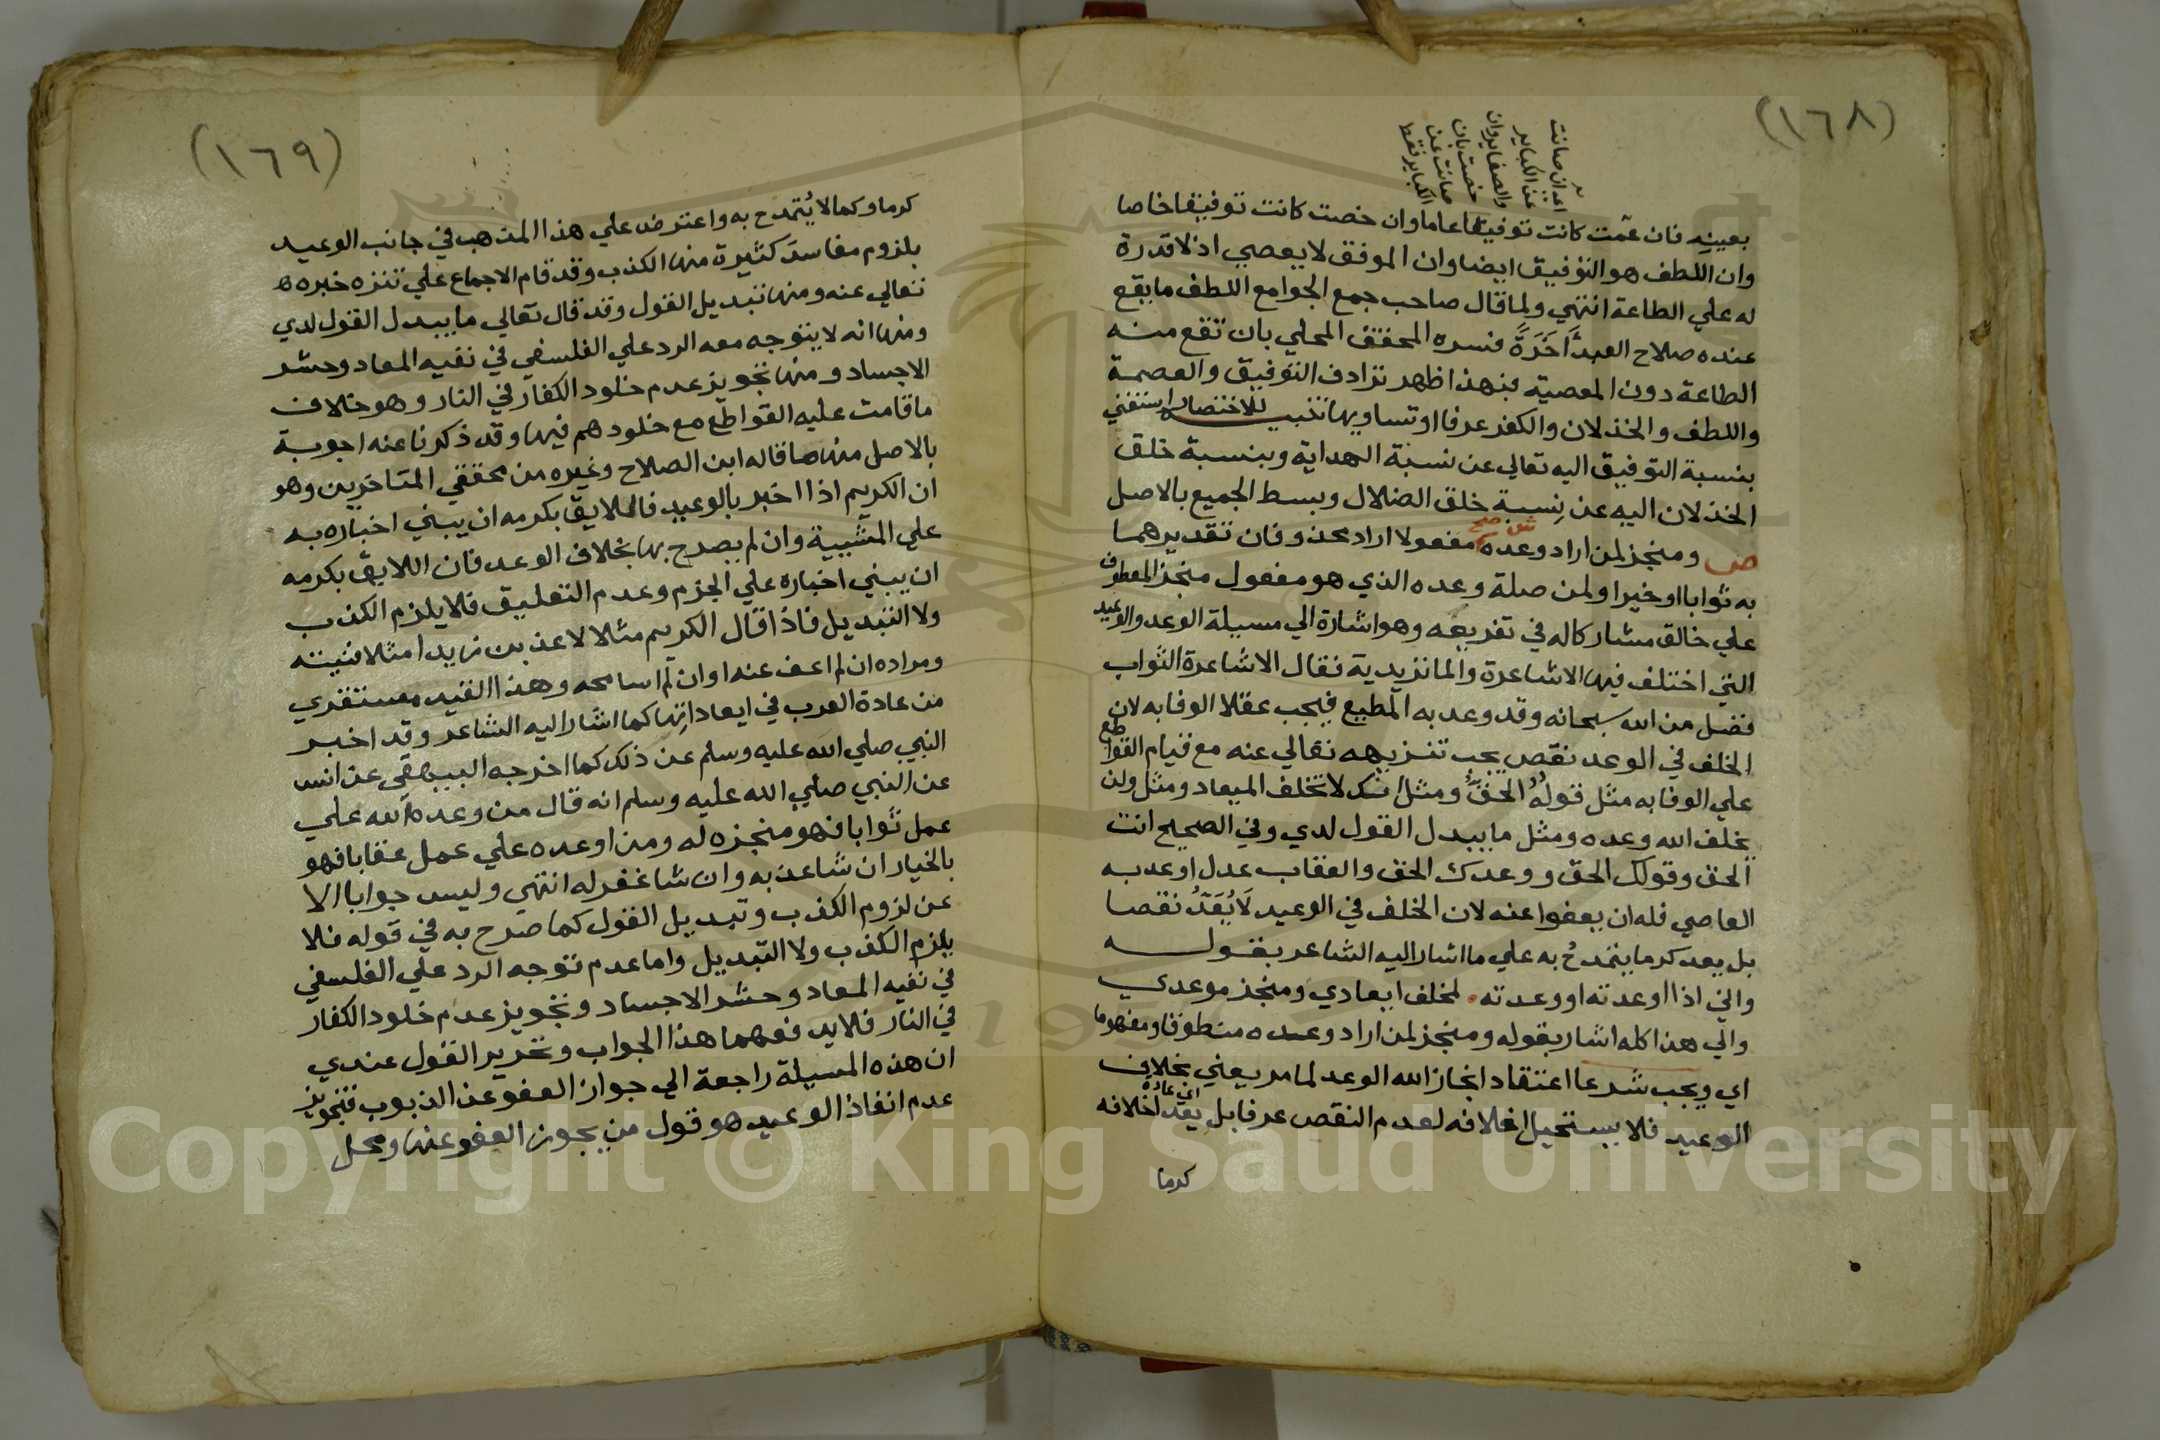 (١٦٨)
اي ان صانت
عن الكباير
والصغاير وان
خصت بان
صانت عن
الكباير فقط
بعينه فان عمّت كانت توفيقا عاما وان خصت كانت توفيقا خاصا
وان اللطف هو التوفيق ايضا وان الموفق لا يعصي اذ لا قدرة
له علي الطاعة انتهي ولما قال صاحب جمع الجوامع اللطف ما يقع
عنده صلاح العبد أَخَرَةً فسره المحقق المحلي بان تقع منه
الطاعة دون المعصية فبهذا ظهر ترادف التوفيق والعصمة
واللطف والخذلان والكفر عرفا او تساويها تنبيه للاختصار استغني
بنسبة التوفيق اليه تعالي عن نسبة الهداية وبنسبة خلق
الخذلان اليه عن نِسبة خلق الضلال وبسط الجميع بالاصل
ص ومنجز لمن اراد وعده ش صح مفعولا اراد محذوفان تقديرهما
به ثوابا او خيرا ولمن صلة وعده الذي هو مفعول منجز المعطوف
علي خالق مشاركا له في تفريعه وهو اشارة الي مسيلة الوعد والوعيد
التي اختلف فيها الاشاعرة والماتريدية فقال الاشاعرة الثواب
فضل من الله سبحانه وقد وعد به المطيع فيجب عقلا الوفا به لان
الخلف في الوعد نقص يجب تنزيهه تعالي عنه مع قيام القواطع
علي الوفا به مثل قولُهُ الحقُّ ومثل انك لا تخلف الميعاد ومثل ولن
يخلف الله وعده ومثل ما يبدل القول لدي وفي الصحيح انت
الحق وقولك الحق ووعدك الحق والعقاب عدل اوعد به
العاصي فله ان يعفو اعنه لان الخلف في الوعيد لَا يُعَدُّ نقصا
بل يعد كرما يتمدحُ به علي ما اشار اليه الشاعر بقوله
واني اذا اوعدته او وعدته . لمخلف ايعادي ومنجز موعدي
والي هذا كله اشار بقوله ومنجز لمن اراد وعده منطوقا ومفهوما
اي ويجب شرعا اعتقاد انجاز الله الوعد لما مر يعني بخلاف
الوعيد فلا يستحيل اخلافه لعدم النقص عرفا بل يعد اي عادة اخلافه
كرما
(١٦٩)
كرما وكمالا يُتمدح به واعترض علي هذا المذهب في جانب الوعيد
بلزوم مفاسد كثيرة منها الكذب وقد قام الاجماع علي تنزه خبره
تعالي عنه ومنها تبديل القول وقد قال تعالي ما يبدل القول لدي
ومنها انه لا يتوجه معه الرد علي الفلسفي في نفيه المعاد وحشر
الاجساد ومنها تجويز عدم خلود الكفار في النار وهو خلاف
ما قامت عليه القواطع مع خلودهم فيها وقد ذكرنا عنه اجوبة
بالاصل منها ما قاله ابن الصلاح وغيره من محققي المتاخرين وهو
ان الكريم اذا اخبر بالوعيد فاللايق بكرمه ان يبني اخباره به
علي المشيية وان لم يصرح بها بخلاف الوعد فان اللايق بكرمه
ان يبني اخباره علي الجزم وعدم التعليق فلا يلزم الكذب
ولا التبديل فاذا قال الكريم مثلا لاعذبن زيدا مثلا فنيته
ومراده ان لم اعف عنه او ان لم اسامحه وهذا القيد مستقري
من عادة العرب في ايعاداتها كما اشار اليه الشاعر وقد اخبر
النبي صلي الله عليه وسلم عن ذلك كما اخرجه البيهقي عن انس
عن النبي صلي الله عليه وسلم انه قال من وعده الله علي
عمل ثوابا فهو منجزه له ومن اوعده علي عمل عقابا فهو
بالخيار ان شا عذبه وان شا غفر له انتهي وليس جوابا الا
عن لزوم الكذب وتبديل القول كما صرح به في قوله فلا
يلزم الكذب ولا التبديل واما عدم توجه الرد علي الفلسفي
في نفيه المعاد وحشر الاجساد وتجويز عدم خلود الكفار
في النار فلا يدفعهما هذا الجواب وتحرير القول عندي
ان هذه المسيلة راجعة الي جواز العفو عن الذنوب فتجويز
عدم انفاذ الوعيد هو قول من يجوز العفو عنها ومحل
Copyright © King Saud University